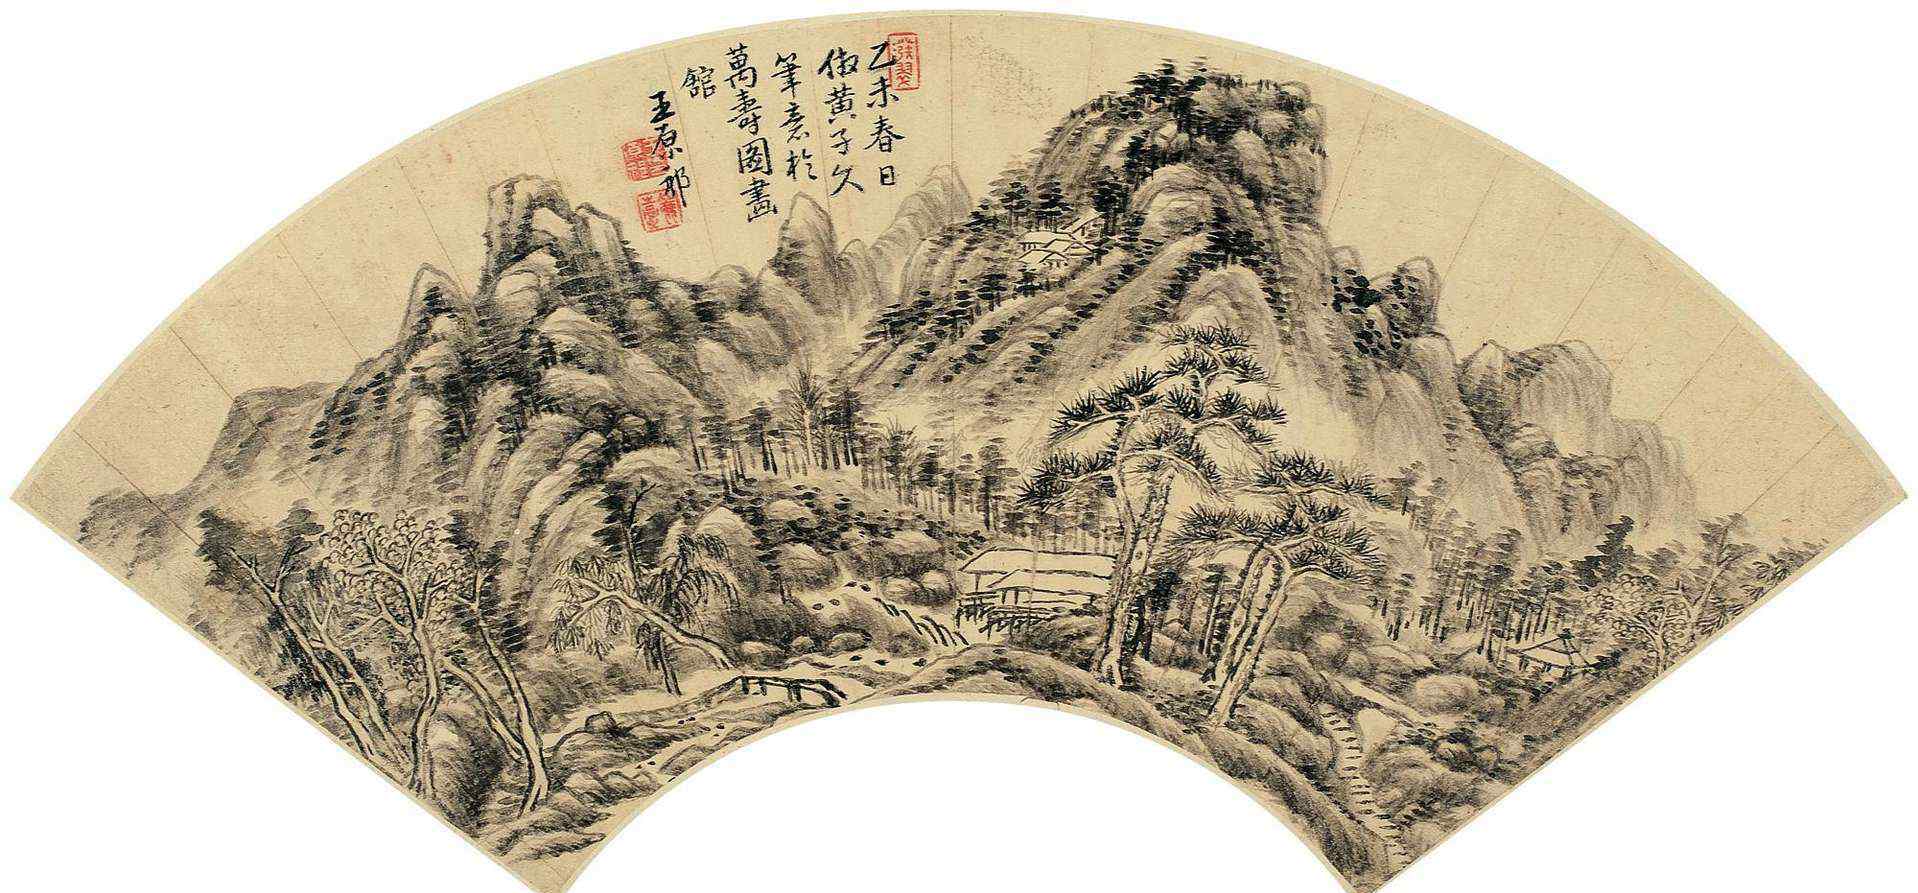 乙未春日
倣黃子久
筆意於
萬壽圖畫
館
王原祁